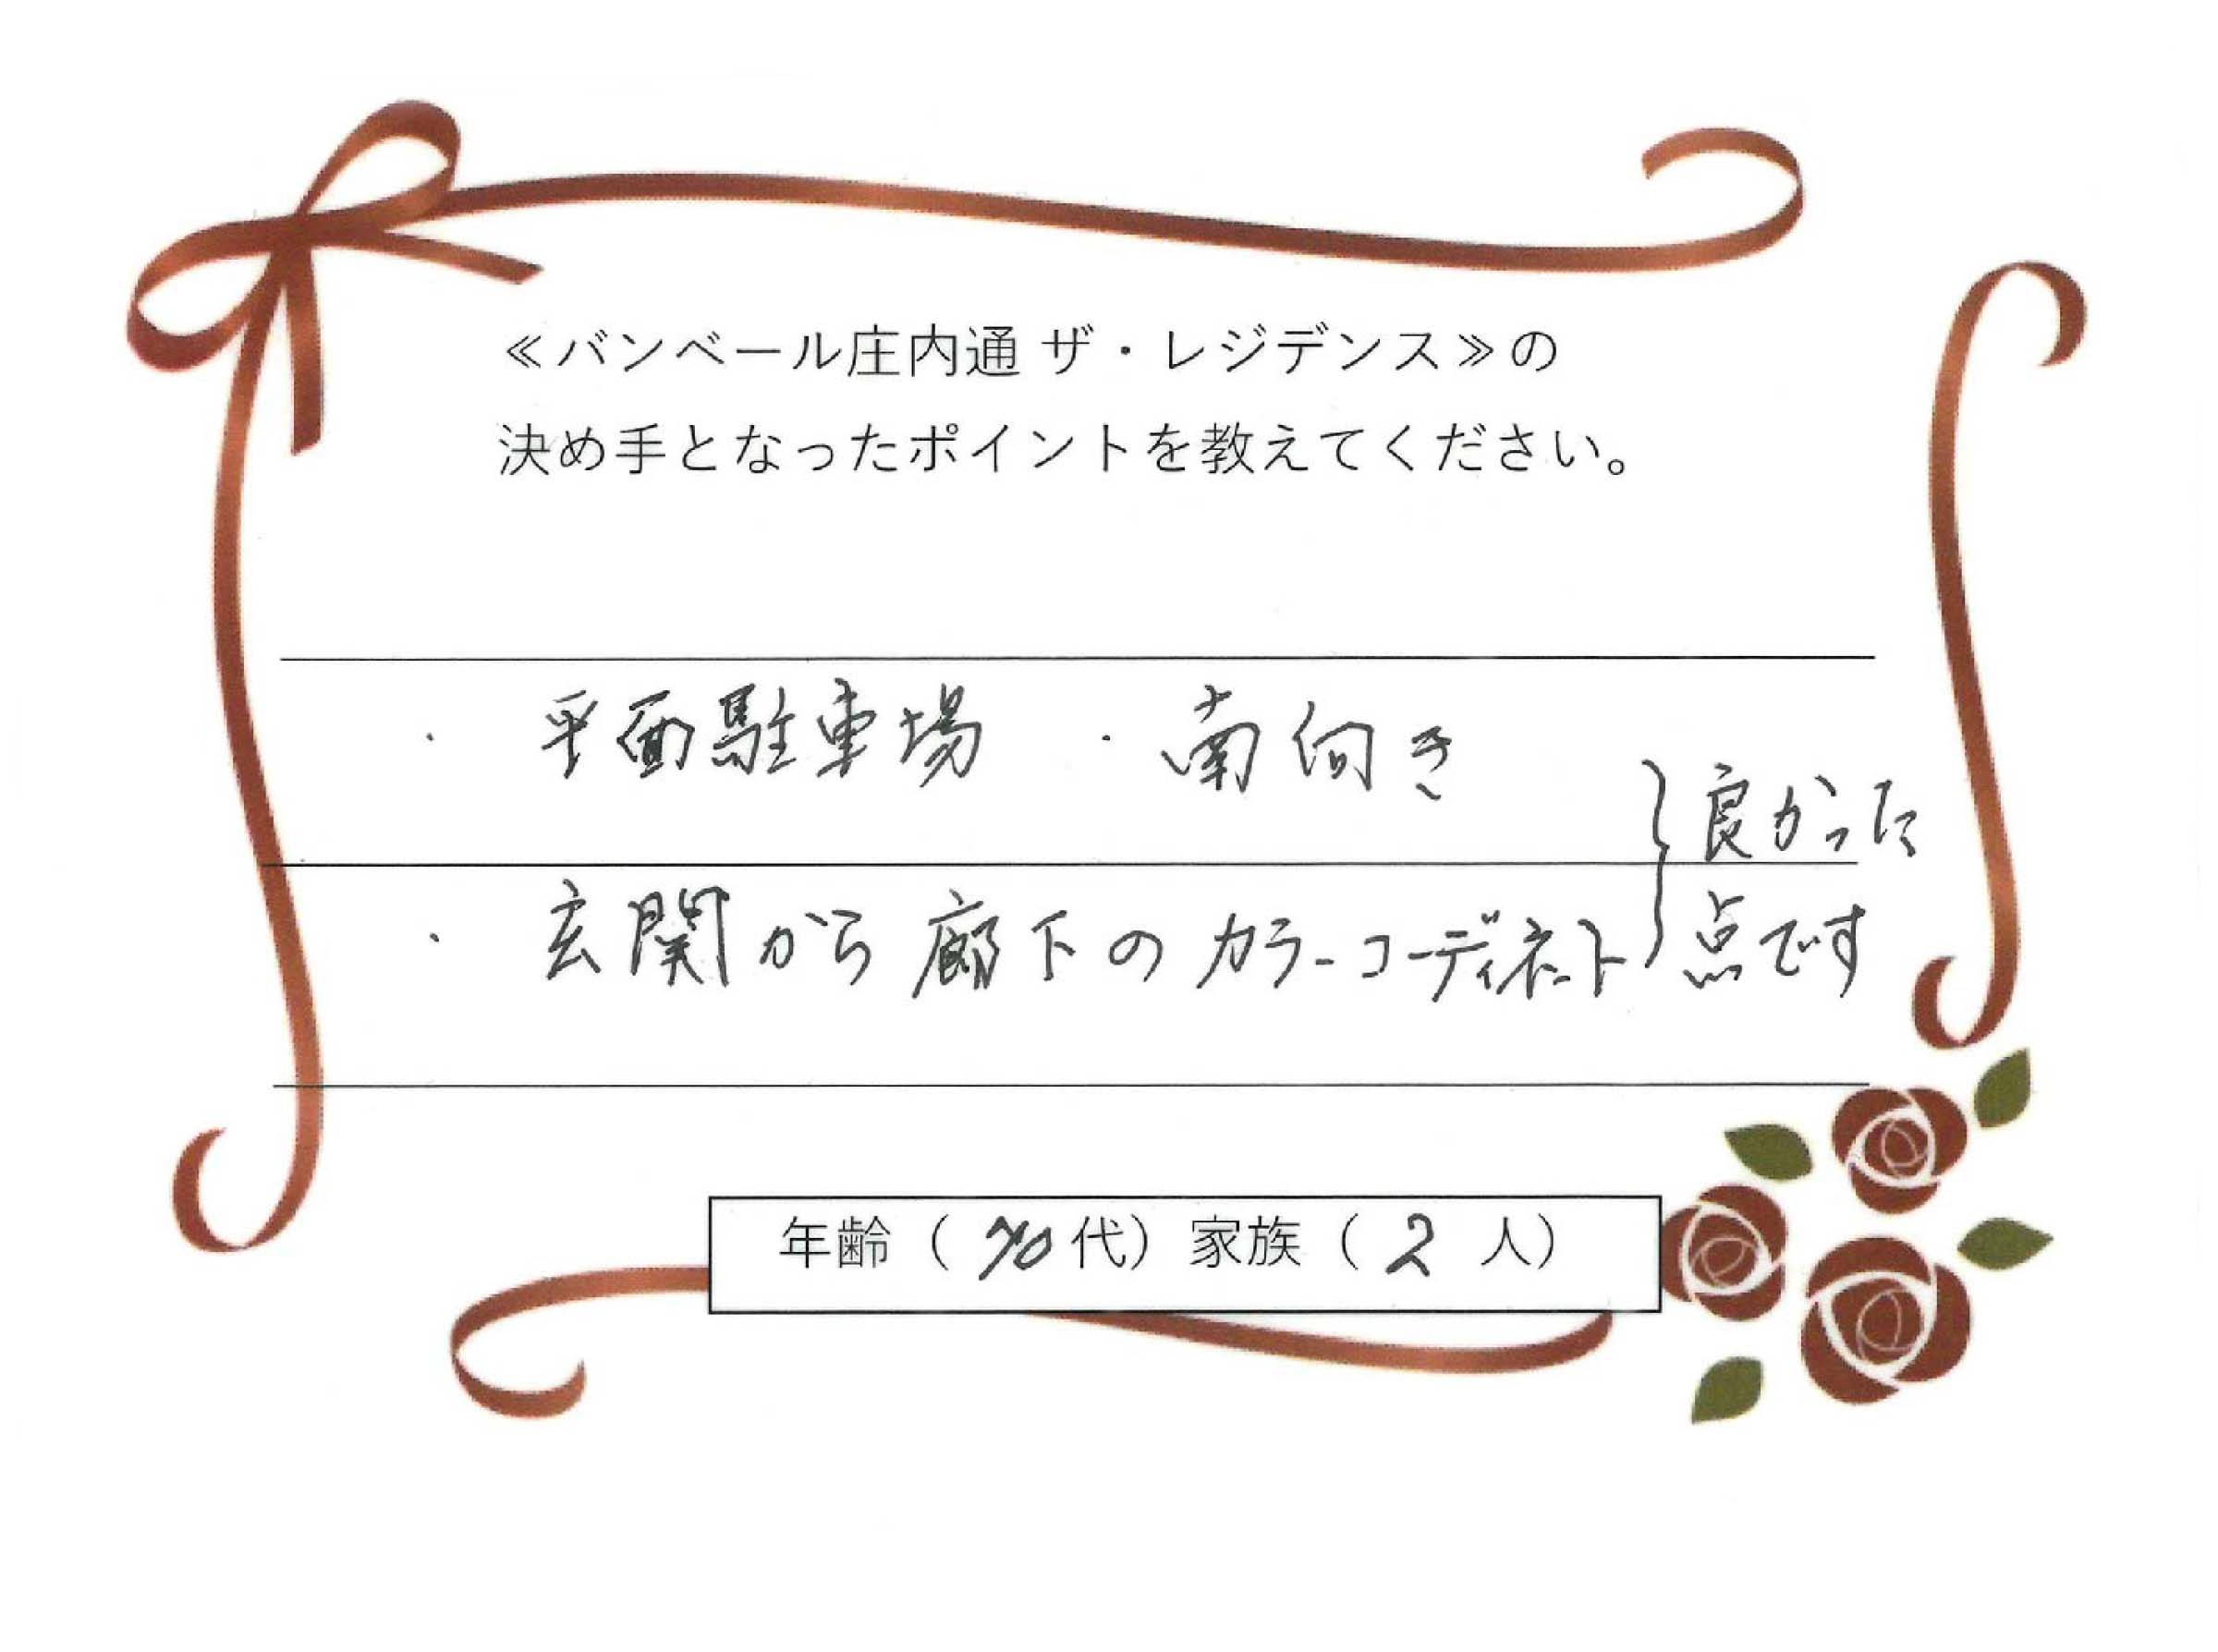 ≪バンベール庄内通 ザ・レジデンス≫の
決め手となったポイントを教えてください。
・平面駐車場 ・南向き
・玄関から廊下のカラーコーディネート
良かった
点です
年齢（70代）家族（2人）